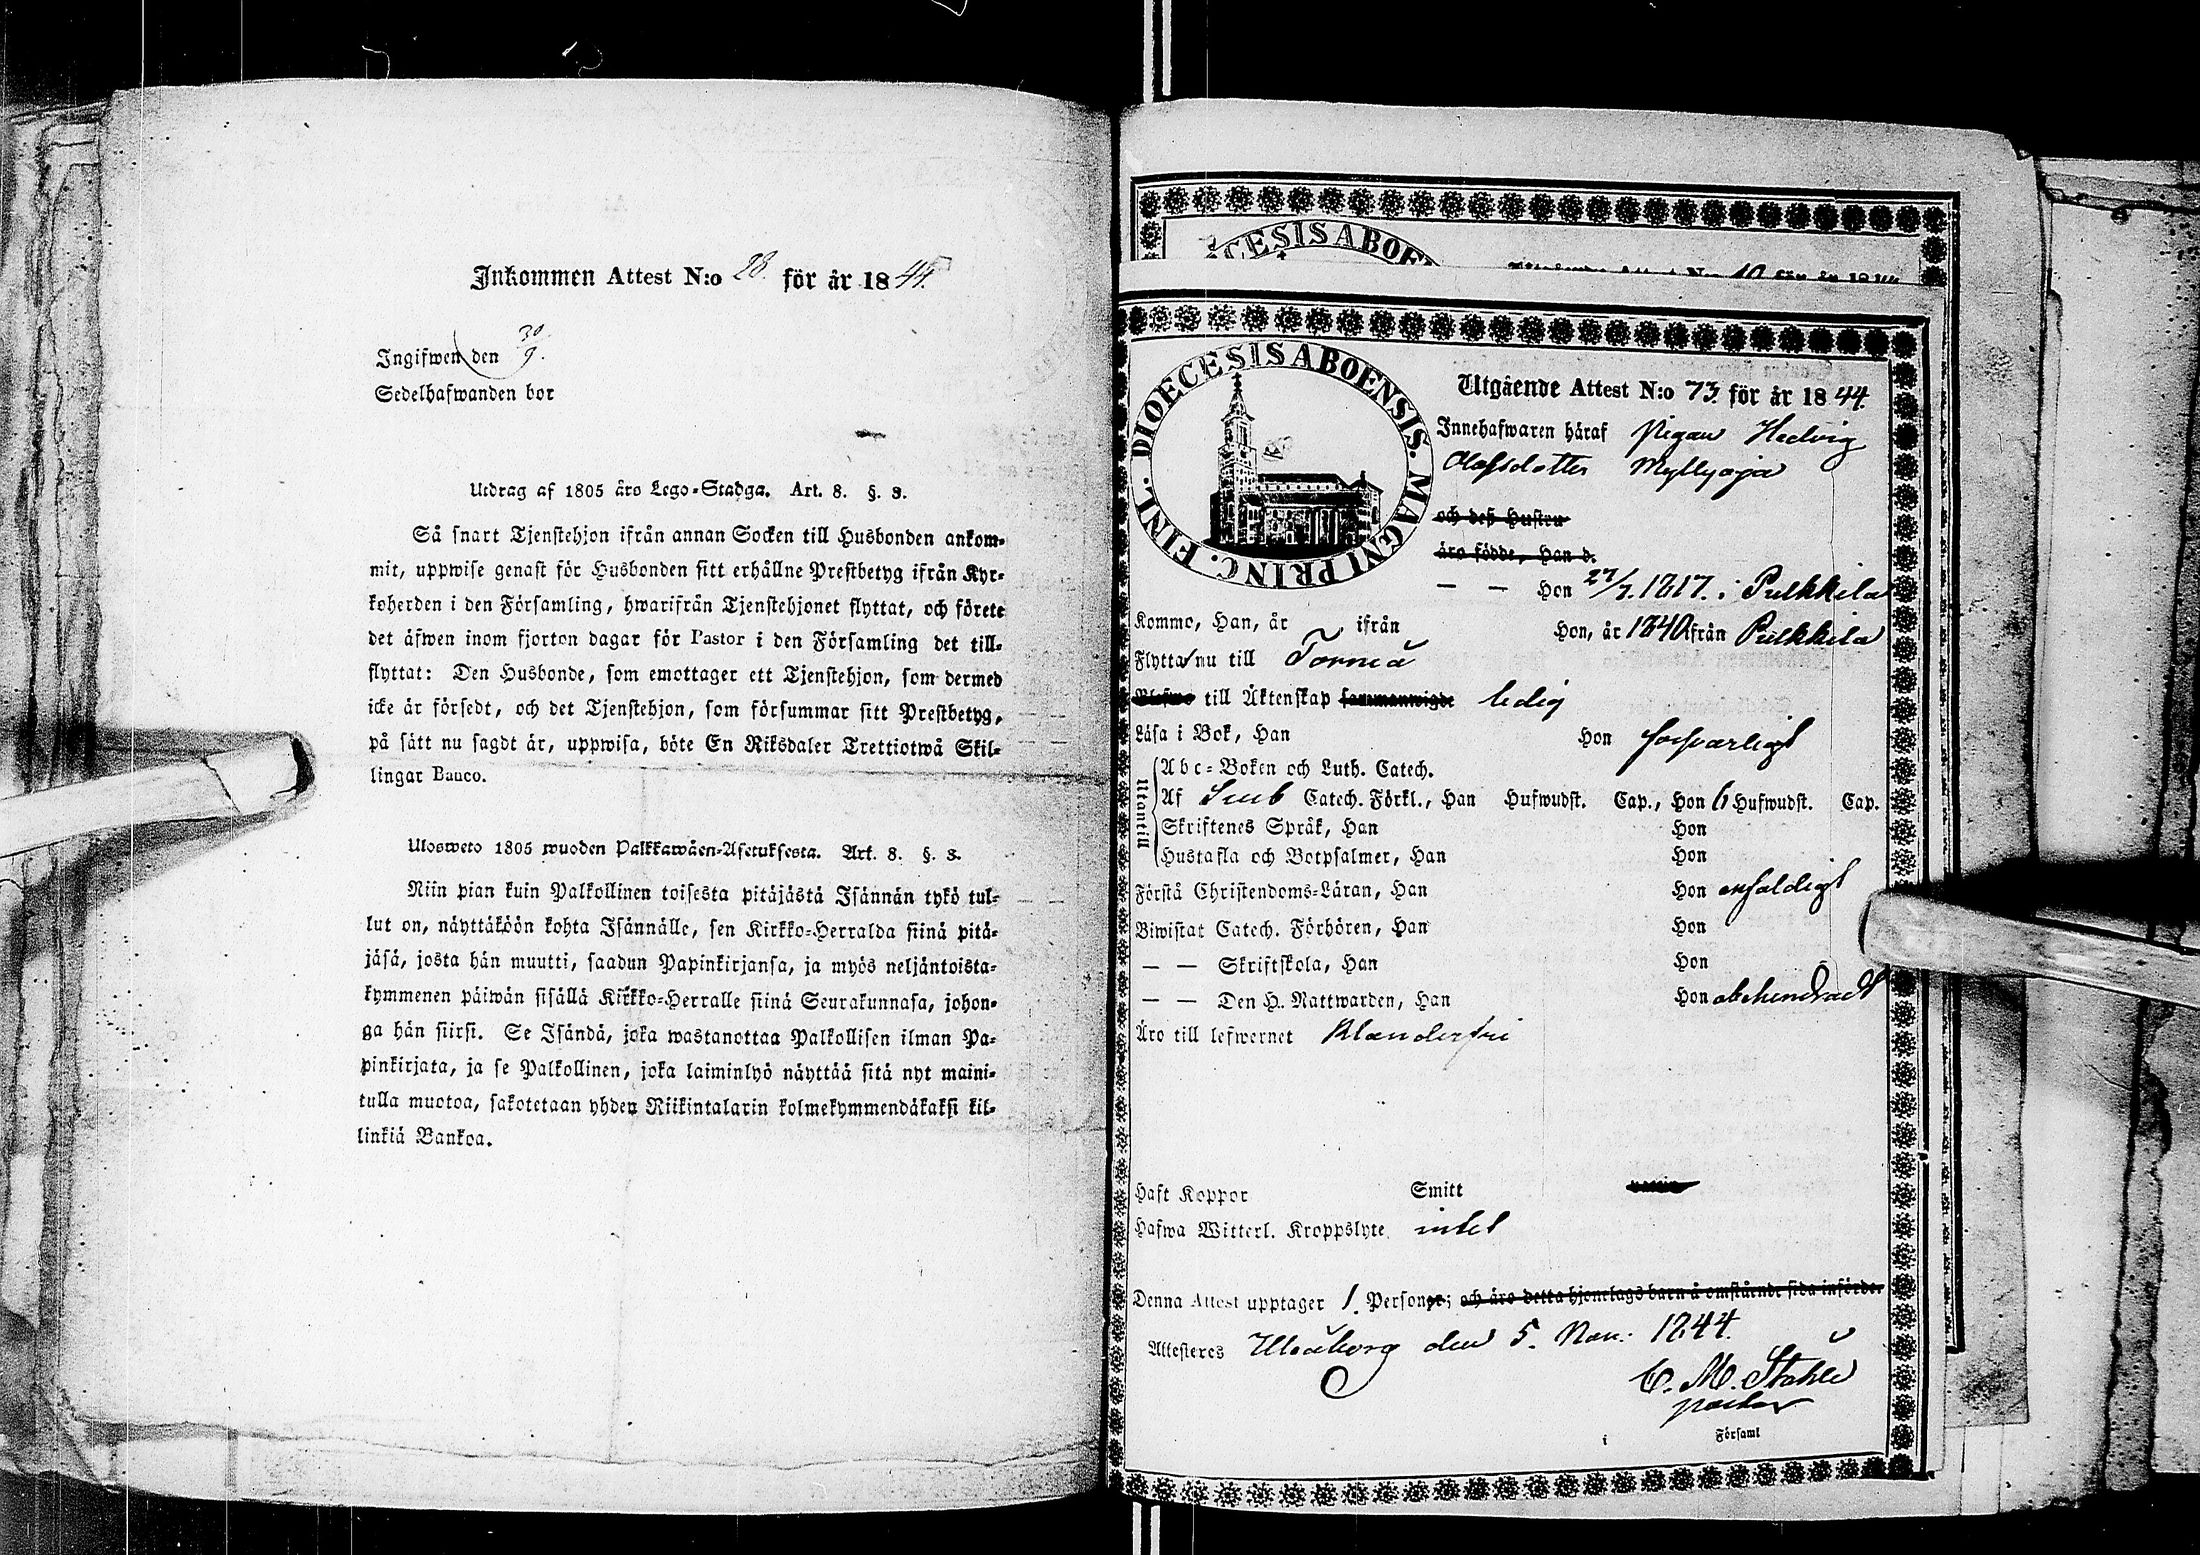 Inkommen Attest N:o 28. för år 1844.
Ingifwen den 30/9.
Sedelhafwanden bor
Utdrag af 1805 års Lego-Stadga. Art. 8. §. 3.
Så snart Tjenstehjon ifrån annan Socken till Husbonden ankom-
mit, uppwise genast för Husbonden sitt erhållne Prestbetyg ifrån Kyr-
koherden i den Församling, hwarifrån Tjenstehjonet flyttat, och förete
det äfwen inom fjorton dagar för Pastor i den Församling det till-
flyttat: Den Husbonde, som emottager ett Tjenstehjon, som dermed
icke är försedt, och det Tjenstehjon, som försummar sitt Prestbetyg,
på sätt nu sagdt är, uppwisa, böte En Riksdaler Trettiotwå Skil-
lingar Banco.
Ulosweto 1805 wuoden Palkkawäen-Asetuksesta. Art. 8. §. 3.
Niin pian kuin Palkollinen toisesta pitäjästä Isännän tykö tul-
lut on, näyttäköön kohta Isännälle, sen Kirkko-Herralda siinä pitä-
jäsä, josta hän muutti, saadun Papinkirjansa, ja myös neljäntoista-
kymmenen päiwän sisällä Kirkko-Herralle siinä Seurakunnasa, johon-
ga hän siirsi. Se Isändä, joka wastanottaa Palkollisen ilman Pa-
pinkirjata, ja se Palkollinen, joka laiminlyö näyttää sitä nyt maini-
tulla muotoa, sakotetaan yhden Riikintalarin kolmekymmendäkaksi kil-
linkiä Bankoa.
CESIS ABOE
Utgående Attest N:o 10 för år 1844
DIOECESIS ABOENSIS. MAGNI PRINC. FINL.
Utgående Attest N:o 73. för år 1844.
Innehafwaren häraf Pigan Hedvig
Olofsdotter Myllyoja
och deß Hustru
äro födde, Han d.
— — Hon 27/7. 1817. i Pulkkila
Komne, Han, år ifrån Hon, år 1840 ifrån Pulkkila
Flytta nu till Torneå
Blefwo till Äktenskap sammanwigde ledig
Läsa i Bok, Han Hon försvarligt
Utantill
Abc-Boken och Luth. Catech.
Af Sveb Catech. Förkl., Han Hufwudst. Cap., Hon 6 Hufwudst. Cap.
Skriftenes Språk, Han Hon
Hustafla och Botpsalmer, Han Hon
Förstå Christendoms-Läran, Han Hon enfaldigt
Biwistat Catech. Förhören, Han Hon
— — Skriftskola, Han Hon
— — Den H. Nattwarden, Han Hon obehindradt
Äro till lefwernet Klanderfri
Haft Koppor Smitt
Hafwa Witterl. Kroppslyte intet
Denna Attest upptager 1. Personer; och äro detta hjonelags barn å omstående sida införde.
Attesteres Uleåborg den 5. Nov. 1844.
C. M. Ståhle
pastor
i Församl